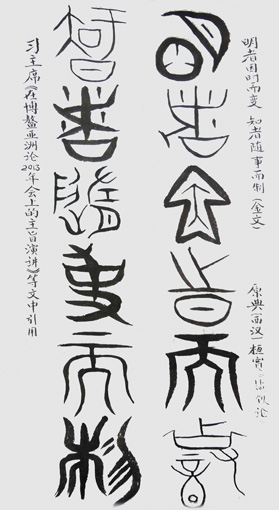 明者因时而变 知者随事而制(金文)
原典西汉桓宽 论
明者因時而變
智者隨事而制
习主席《在博鳌亚洲论2013年会上的主旨演讲》等文中引用